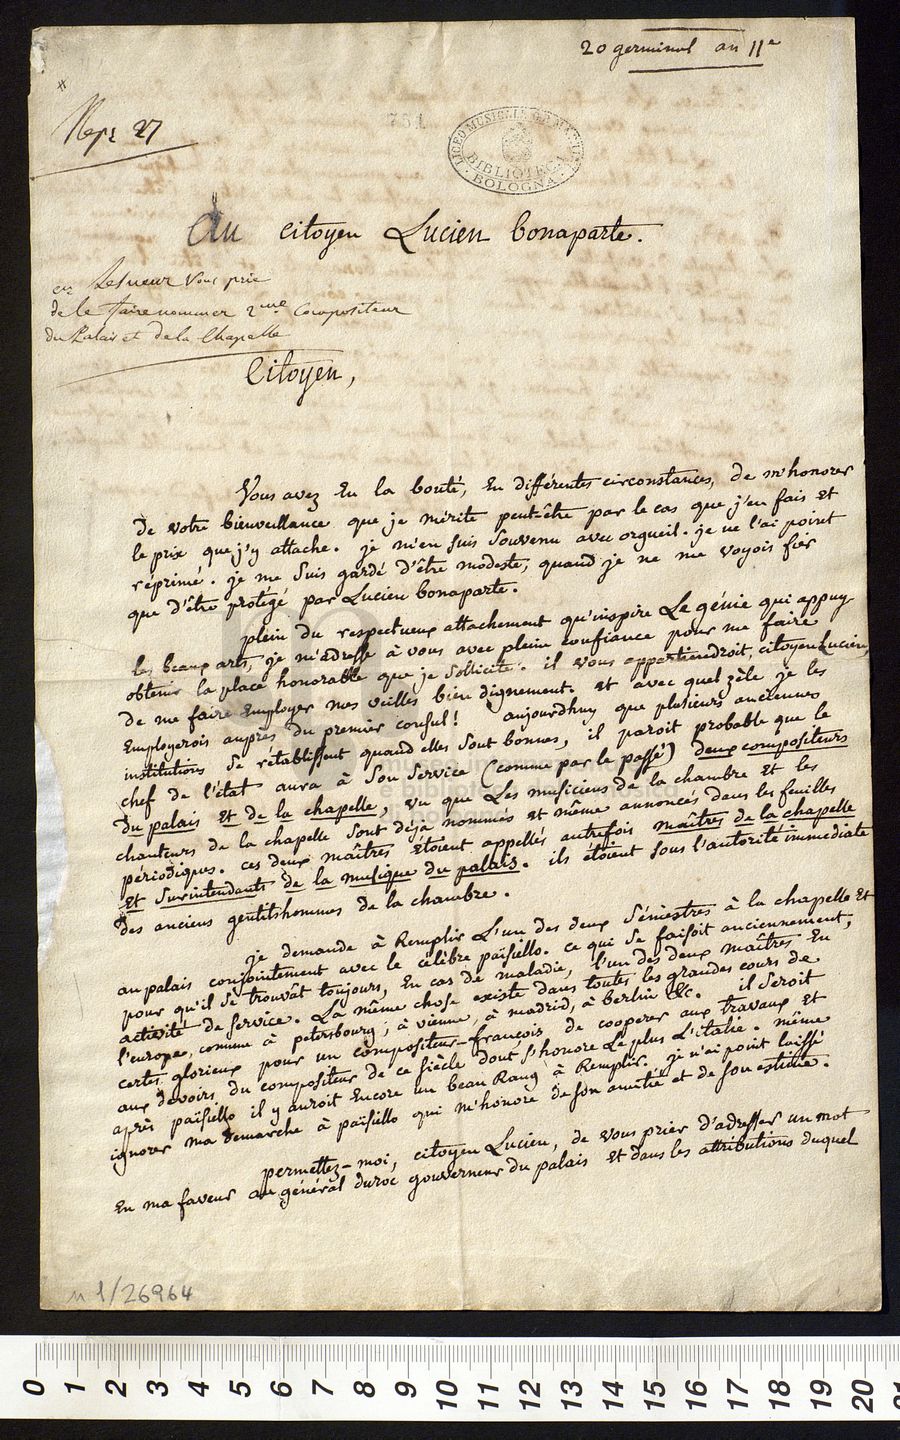 20 germinal an 11e
Rep. 27
781
LICEO MUSICALE
BIBLIOTECA
BOLOGNA
Au citoyen Lucien bonaparte.
Lesueur vous prie
de le faire nommer 2me Compositeur
du Palais et de la Chapelle
Citoyen,
Vous avez eu la bonté, en différentes circonstances, de m'honorer
de votre bienveillance que je mérite peut-être par le cas que j'en fais et
le prix que j'y attache. je m'en suis souvenu avec orgueil. je ne l'ai point
réprimé. je me suis gardé d'être modeste, quand je ne me voyois fier
que d'être protégé par Lucien bonaparte.
plein du respectueux attachement qu'inspire Le génie qui appuy
les beaux arts, je m'adresse à vous avec pleine confiance pour me faire
obtenir la place honorable que je sollicite. il vous appartiendroit, citoyen Lucien,
de me faire employer mes veilles bien dignement. et avec quel zèle je les
employerois auprès du premier consul! aujourdhuy que plusieurs anciennes
institutions se rétablissent quand elles sont bonnes, il paroit probable que le
chef de l'état aura à son service (comme par le passé) deux compositeurs
du palais et de la chapelle, vu que Les musiciens de la chambre et les
chanteurs de la chapelle sont déjà nommés et même annoncés dans les feuilles
périodiques. ces deux maîtres étoient appellés autrefois maîtres de la chapelle
et surintendants de la musique du palais. ils étoient sous l'autorité immédiate
des anciens gentilshommes de la chambre.
je demande à Remplir L'un des deux séméstres à la chapelle et
au palais conjointement avec le célèbre païsiello. ce qui se faisoit anciennement,
pour qu'il se trouvât toujours, en cas de maladie, l'un des deux maîtres en
activité de service. La même chose existe dans toutes les grandes cours de
l'europe, comme à petersbourg, à vienne, à madrid, à berlin &c. il seroit
certes glorieux pour un compositeur-françois de cooperer aux travaux et
aux devoirs du compositeur de ce siècle dont s'honore Le plus L'italie. même
après païsiello il y auroit encore un beau Rang à Remplir. je n'ai point laissé
ignorer ma démarche à païsiello qui m'honore de son amitié et de son estime.
permettez-moi, citoyen Lucien, de vous prier d'adresser un mot
en ma faveur au général duroc gouverneur du palais et dans les attributions duquel
n 1/26964
museo internazionale
e biblioteca della musica
di bologna
0 1 2 3 4 5 6 7 8 9 10 11 12 13 14 15 16 17 18 19 20